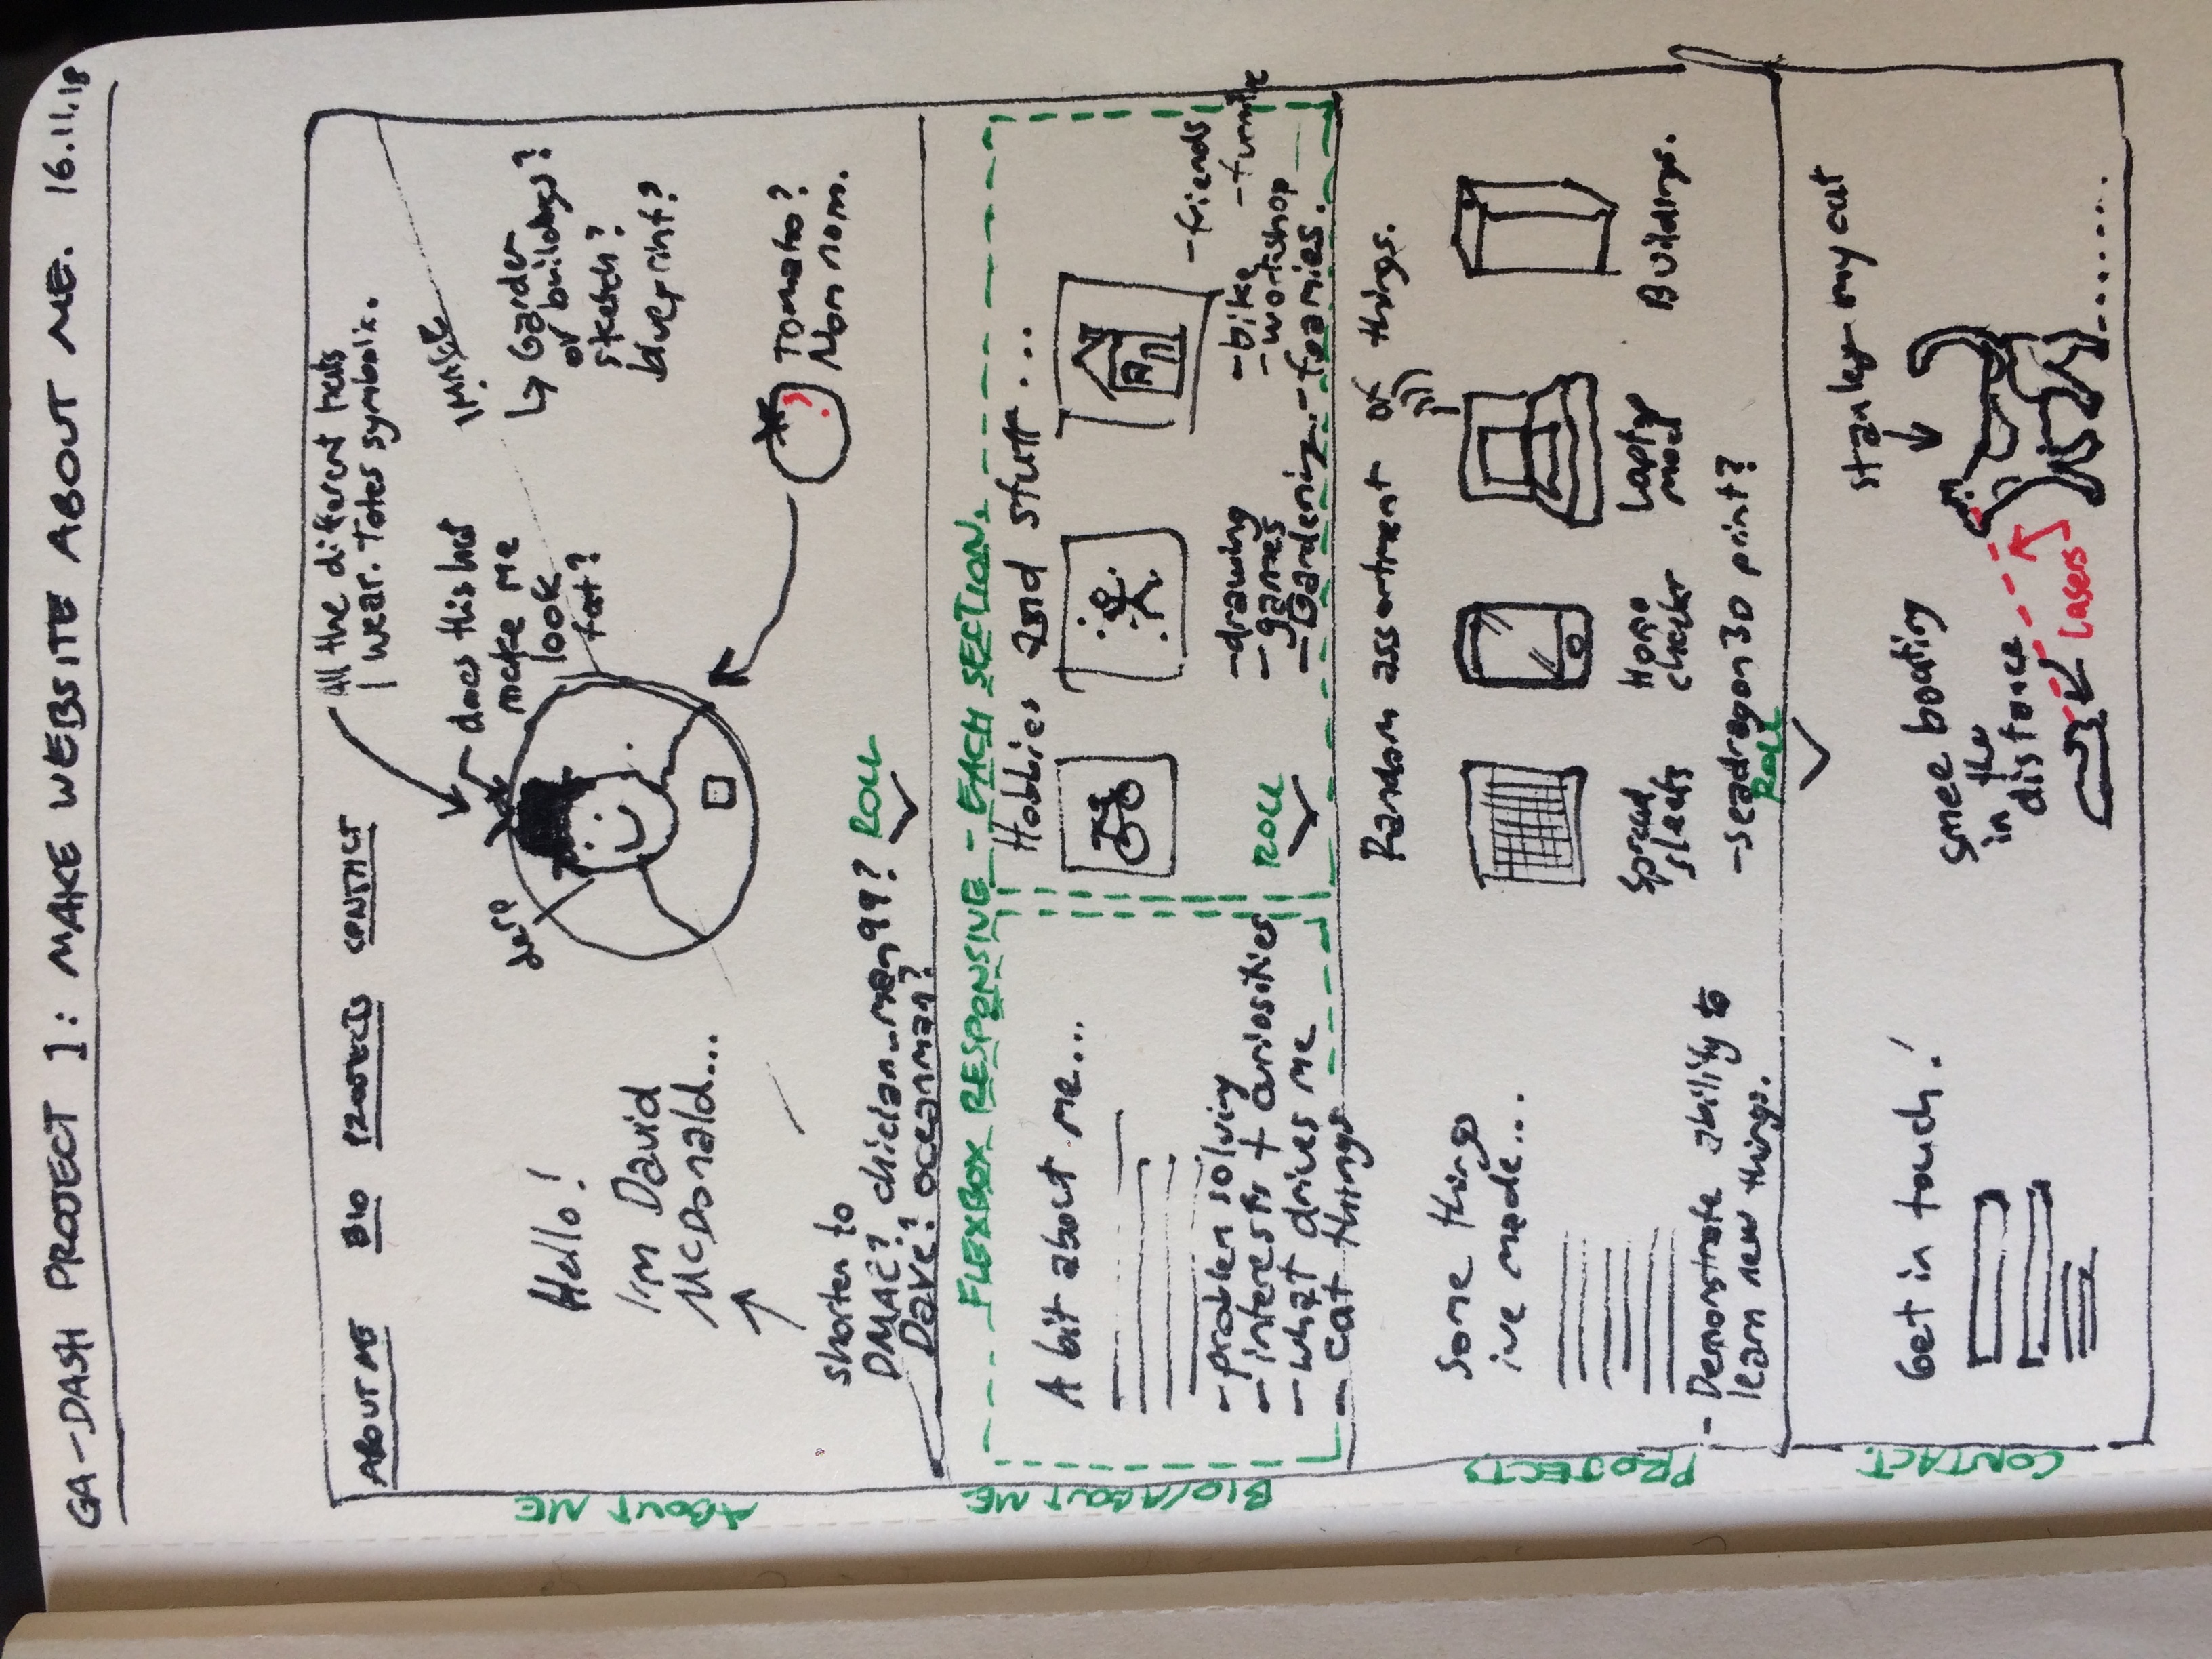 GA-DASH PROJECT 1: MAKE WEBSITE ABOUT ME. 16.11.18
ABOUT ME BIO PROJECTS CONTACT
All the different hats
I wear. Totes symbolic.
ABOUT ME
derp
does this hat
make me
look
fat?
IMAGE
Garden
or buildings?
sketch?
blueprint?
Hello!
I'm David
McDonald...
Tomato?
Nom nom.
shorten to
DMAC? man99?
Dave? oceanman?
ROLL
BIO/ABOUT ME
FLEXBOX RESPONSIVE - EACH SECTION.
A bit about me...
- problem solving
- interests + curiosities
- what drives me
- cat things
Hobbies and stuff...
- drawing
- games
- Gardening.
- bike
- workshop
- friends
ROLL
PROJECTS
Some things
ive made...
- Demonstrate ability to
learn new things.
Random assortment of things.
Spread
sheets
Laptop
mod
Buildings.
- seadragon 3D print?
ROLL
CONTACT.
Get in touch!
smee boating
in the
distance
stanley my cat
Lasers